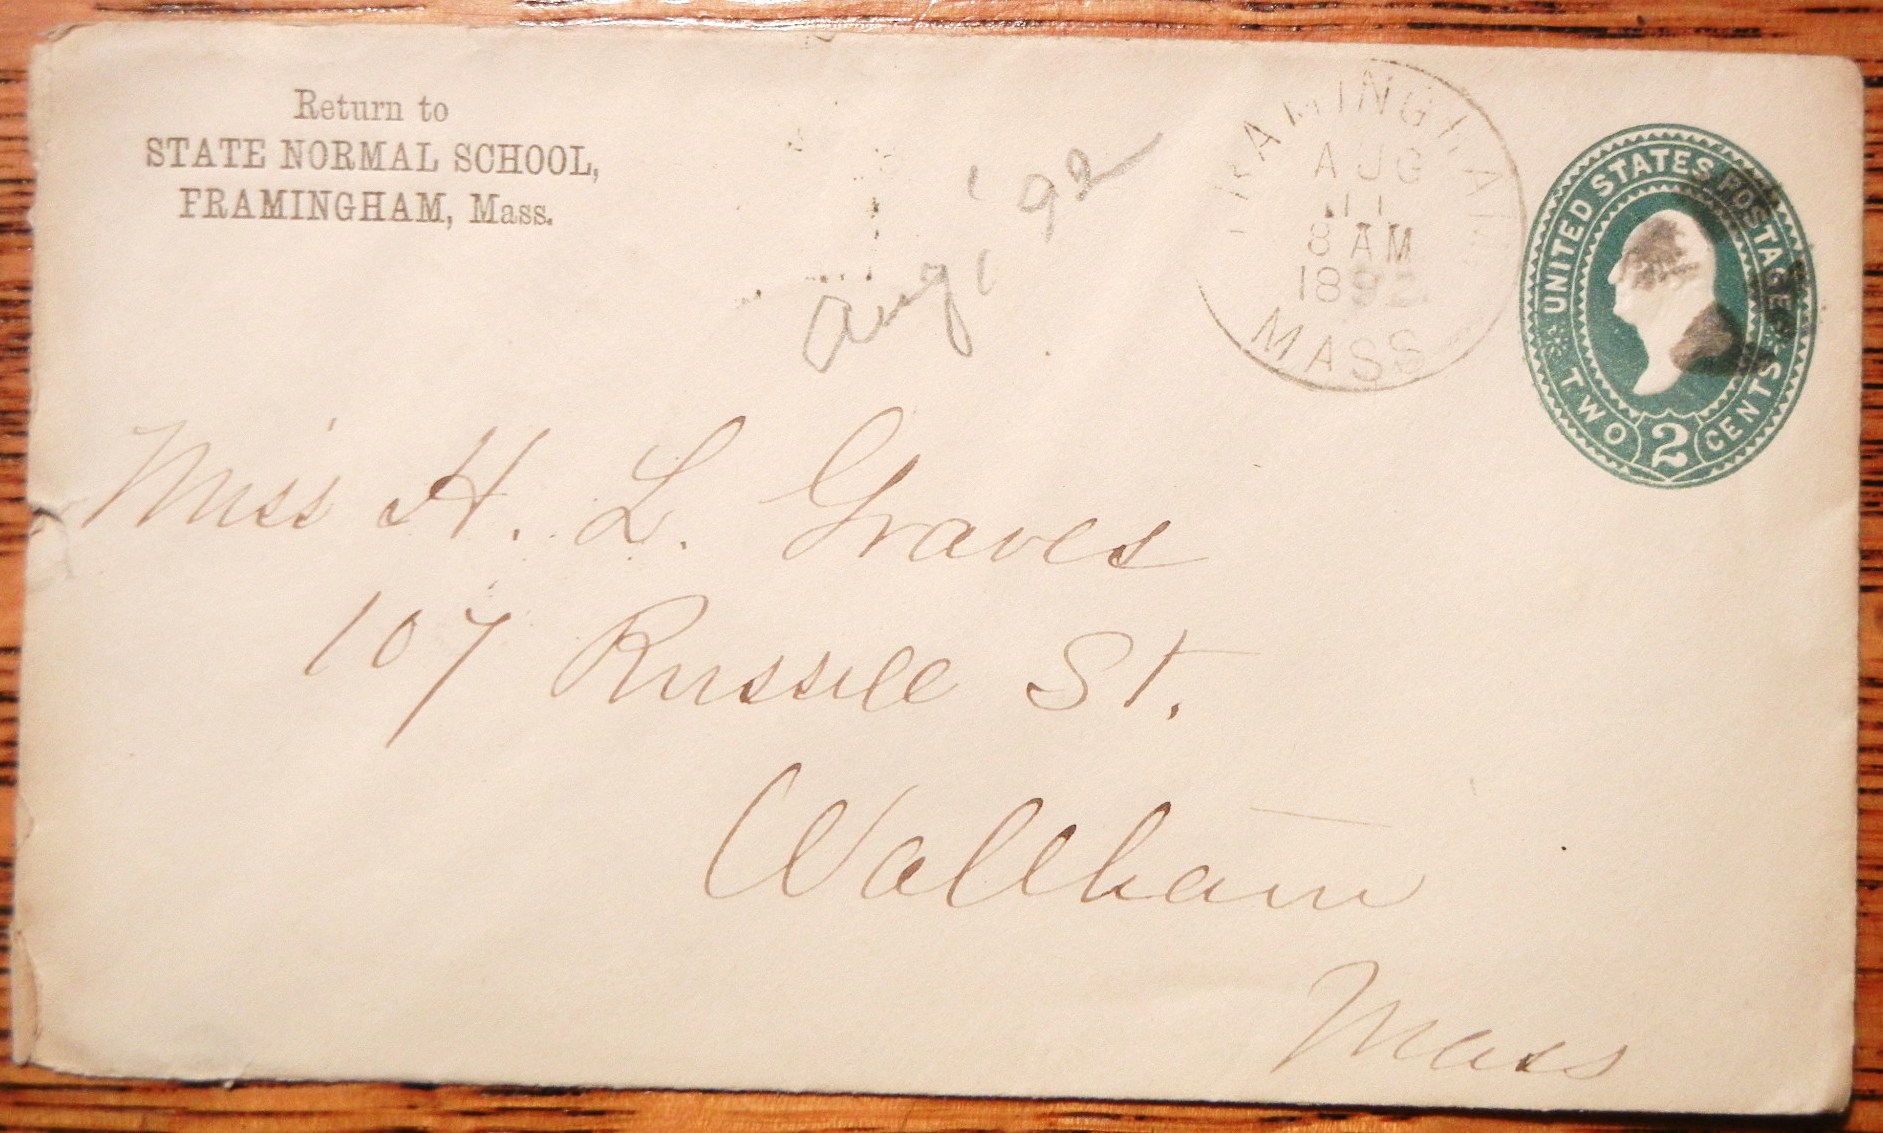 Return to
STATE NORMAL SCHOOL,
FRAMINGHAM, Mass.
Aug, '92
FRAMINGHAM
AUG
11
8 AM
1892
MASS
UNITED STATES POSTAGE
TWO 2 CENTS
Miss H. L. Graves
107 Russell St.
Waltham
Mass